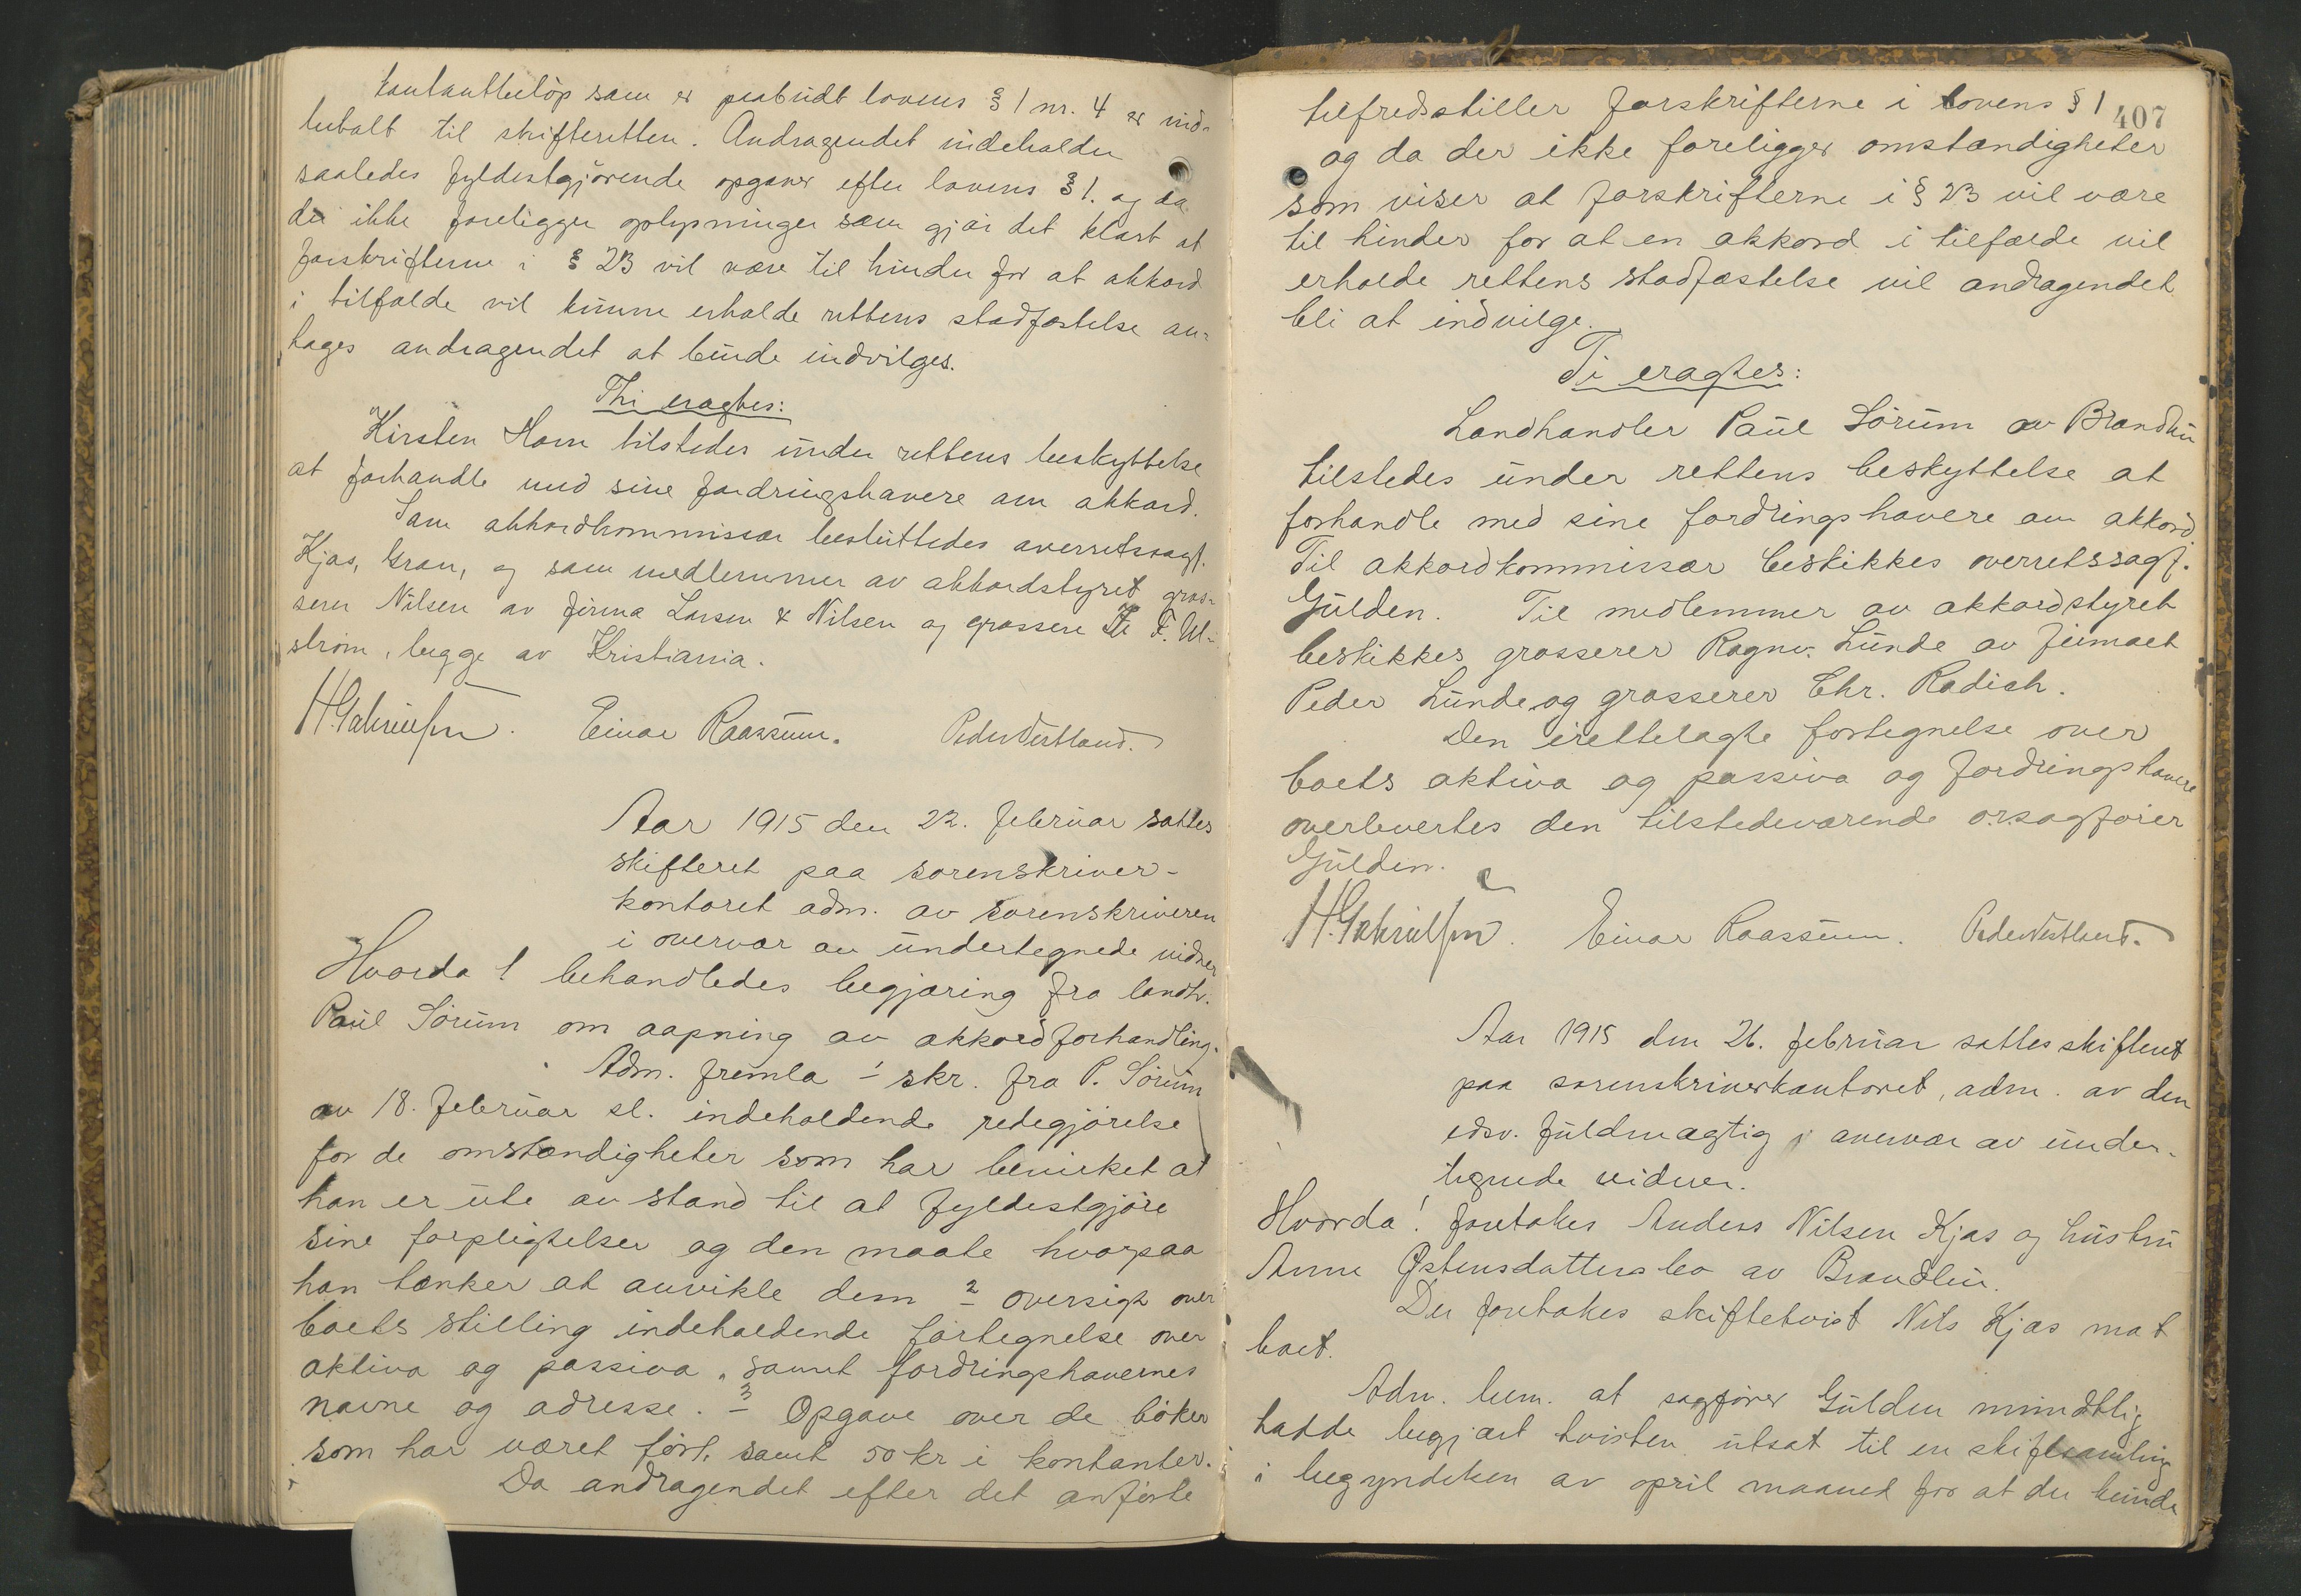 kontantbeløp som er paabudt lovens § 1 nr. 4 er ind-
betalt til skifteretten. Andragendet indeholder
saaledes fyldestgjørende opgaver efter lovens § 1. og da
der ikke foreligger oplysninger som gjør det klart at
forskrifterne i § 23 vil være til hinder for at akkord
i tilfælde vil kunne erholde rettens stadfæstelse an-
tages andragendet at burde indvilges.
Thi eragtes:
Kirsten Horn tilstedes under rettens beskyttelse
at forhandle med sine fordringshavere om akkord.
Som akkordkommissær besluttedes overretssagf.
Kjos, Gran, og som medlemmer av akkordstyret gros-
serer Nilsen av firma Larsen & Nilsen og grosserer F. Ul-
strøm, begge av Kristiania.
Einar Raassum. Peder Vestland.
Aar 1915 den 22. februar sattes
skifteret paa sorenskriver-
kontoret adm. av sorenskriveren
i overvær av undertegnede vidner
Hvorda 1 behandledes begjæring fra landh.
Paul Sørum om aapning av akkordforhandling.
Adm. fremla 1 skr. fra P. Sørum
av 18. februar sl. indeholdende redegjørelse
for de omstændigheter som har bevirket at
han er ute av stand til at fyldestgjøre
sine forpligtelser og den maate hvorpaa
han tænker at avvikle dem 2 oversigt over
boets stilling indeholdende fortegnelse over
aktiva og passiva, samt fordringshavernes
navne og adresse. 3 Opgave over de bøker
som har været ført, samt 50 kr i kontanter.
Da andragendet efter det anførte
407
tilfredsstiller forskrifterne i lovens § 1
og da der ikke foreligger omstændigheter
som viser at forskrifterne i § 23 vil være
til hinder for at en akkord i tilfælde vil
erholde rettens stadfæstelse vil andragendet
bli at indvilge.
Ti eragtes:
Landhandler Paul Sørum av Brandbu
tilstedes under rettens beskyttelse at
forhandle med sine fordringshavere om akkord.
Til akkordkommissær beskikkes overretssagf.
Gulden. Til medlemmer av akkordstyret
beskikkes grosserer Ragnv. Lunde av firmaet
Peder Lunde og grosserer Chr. Radich.
Den irettelagte fortegnelse over
boets aktiva og passiva og fordringshavere
overlevertes den tilstedeværende o.rsagfører
Gulden.
Einar Raassum. Peder Vestland.
Aar 1915 den 26. februar sattes skifteret
paa sorenskriverkontoret, adm. av den
edsv. fuldmægtig i overvær av under-
tegnede vidner.
Hvorda! foretokes Anders Nilsen Kjos og hustru
Anne Østensdatters bo av Brandbu.
Der foretokes skiftetvist Nils Kjos mot
boet.
Adm. bem. at sagfører Gulden mundtlig
hadde begjært tvisten utsat til en skiftesamling
i begyndelsen av april maaned for at der kunde